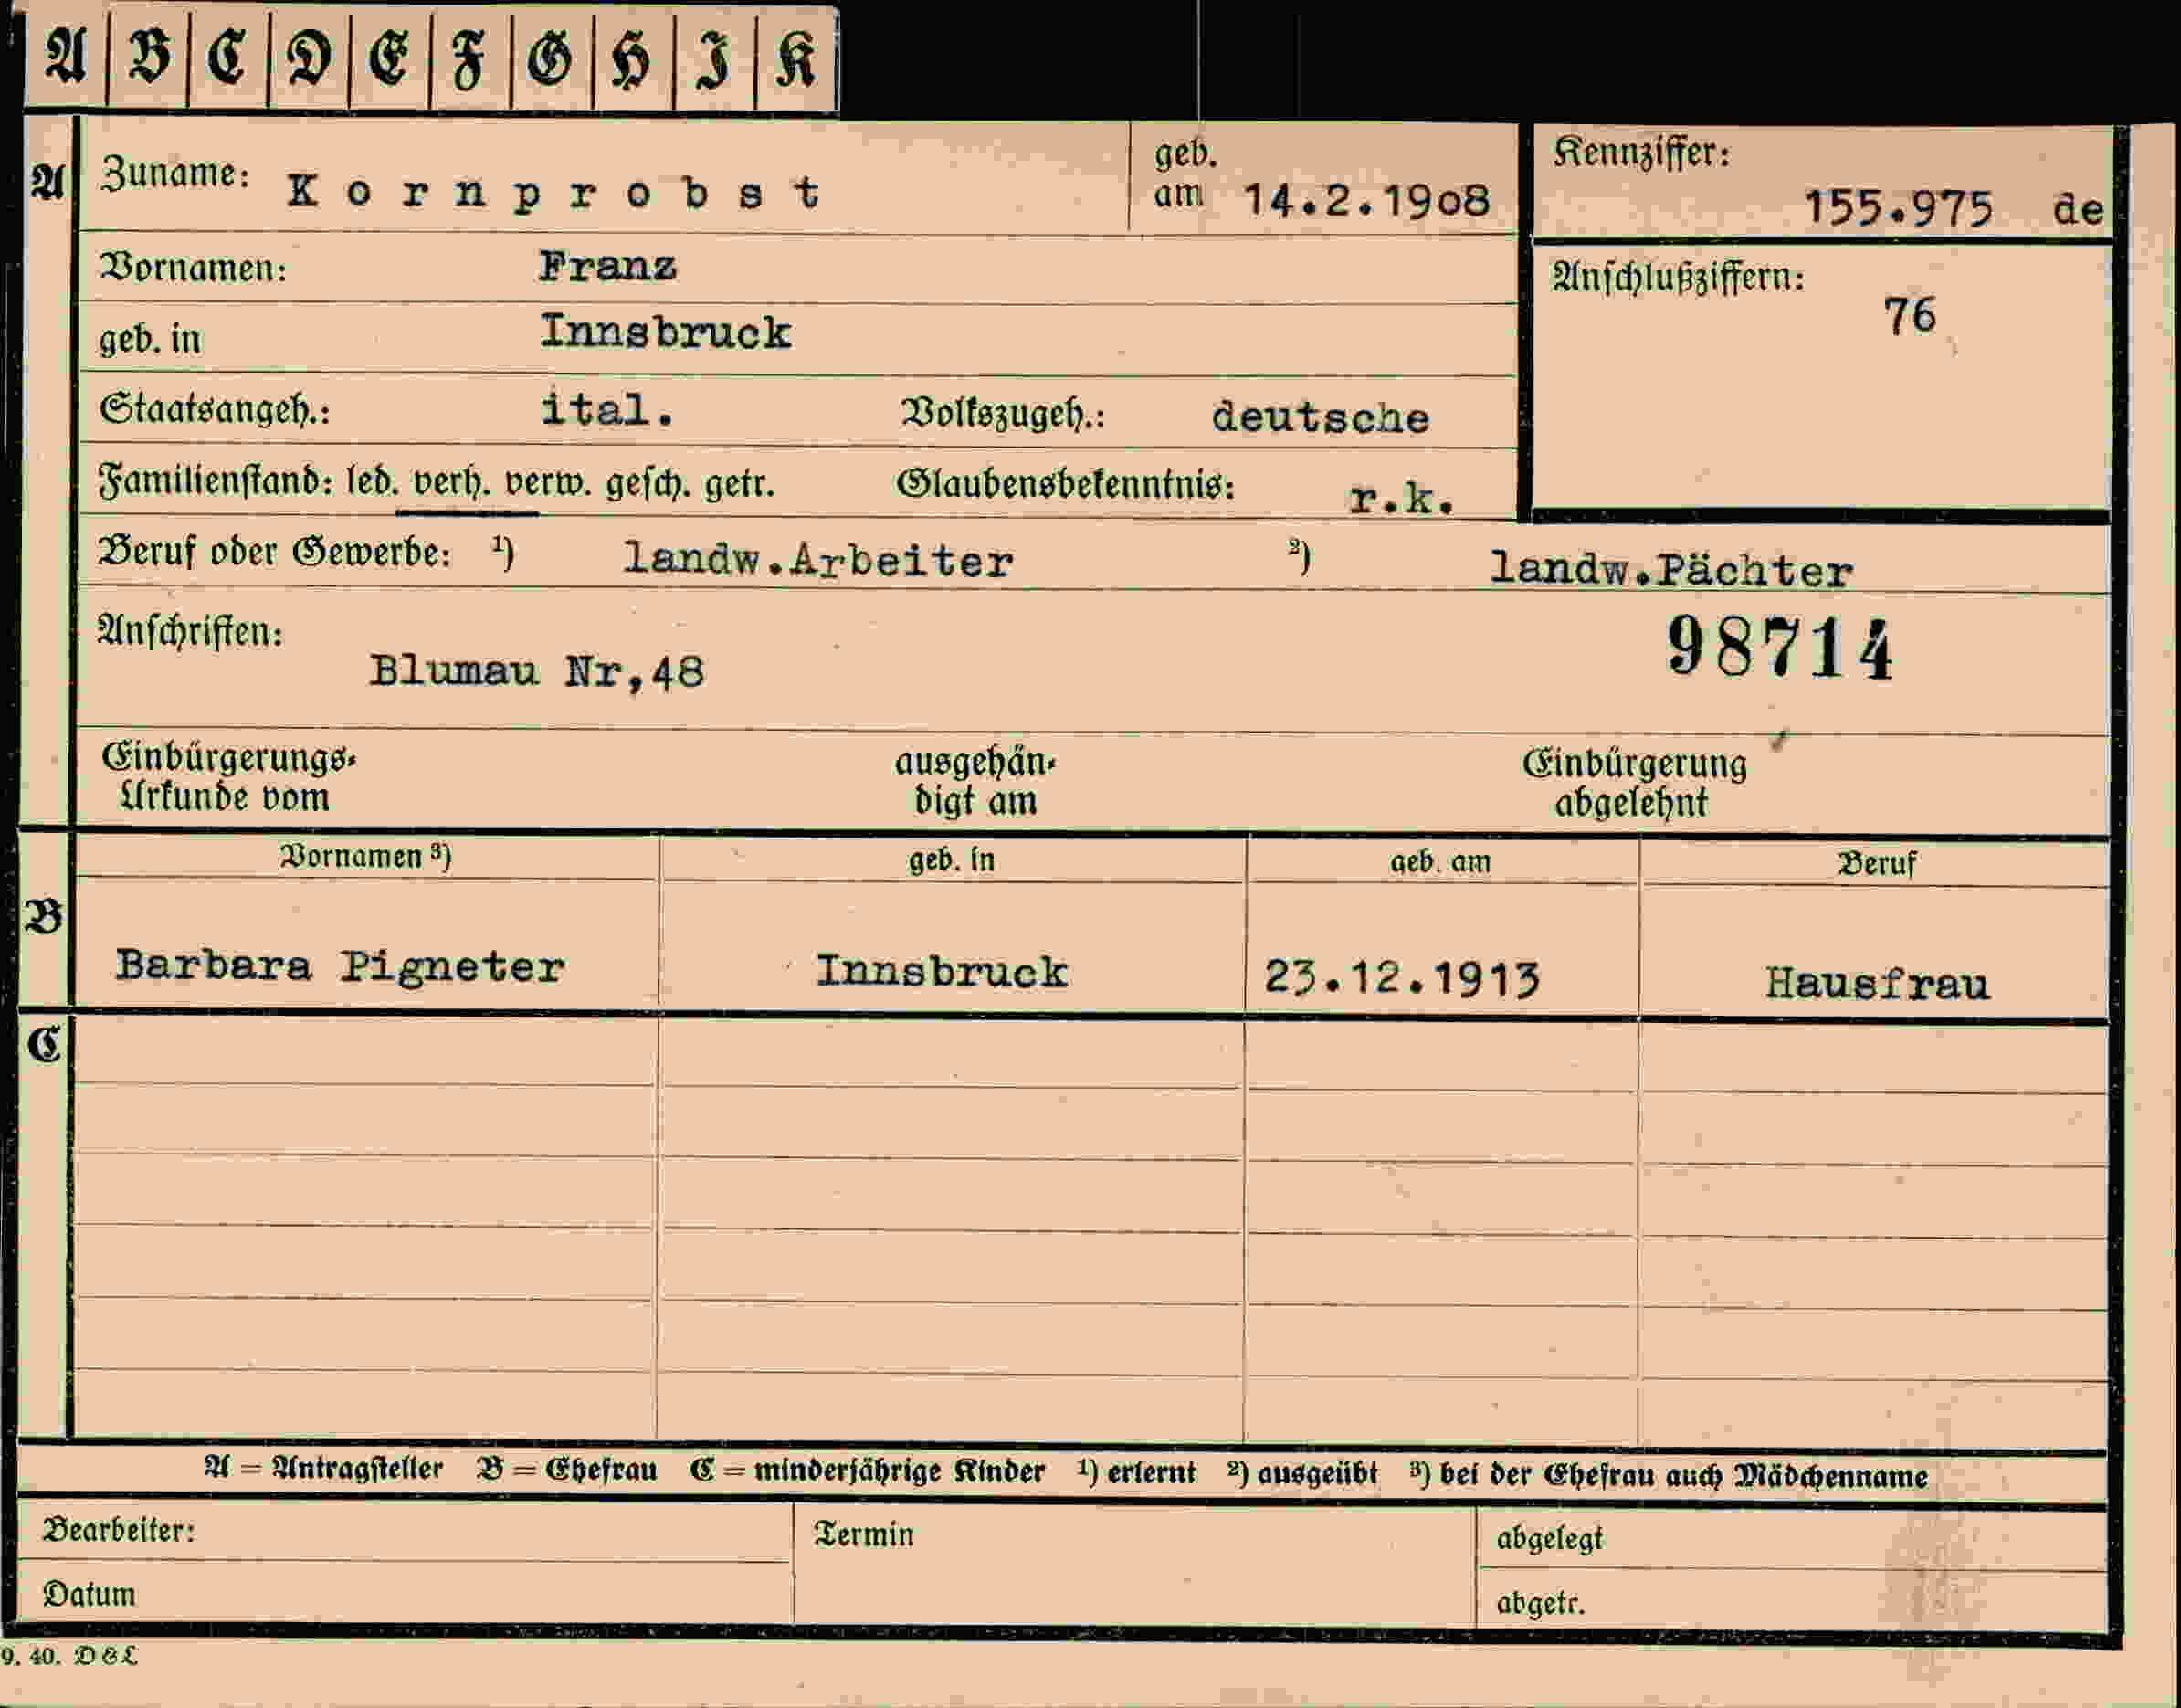 A B C D E F G H I K
A Zuname: Kornprobst geb. am 14.2.1908 Kennziffer: 155.975 de
Vornamen: Franz Anschlußziffern: 76
geb. in Innsbruck
Staatsangeh.: ital. Volkszugeh.: deutsche
Familienstand: led. verh. verw. gesch. getr. Glaubensbekenntnis: r.k.
Beruf oder Gewerbe: ¹) landw.Arbeiter ²) landw.Pächter
Anschriften: 98714
Blumau Nr,48
Einbürgerungs- ausgehän- Einbürgerung
Urkunde vom digt am abgelehnt
Vornamen ³) geb. in geb. am Beruf
B
Barbara Pigneter Innsbruck 23.12.1913 Hausfrau
C
A = Antragsteller B = Ehefrau C = minderjährige Kinder ¹) erlernt ²) ausgeübt ³) bei der Ehefrau auch Mädchenname
Bearbeiter: Termin abgelegt
Datum abgetr.
9. 40. D&L